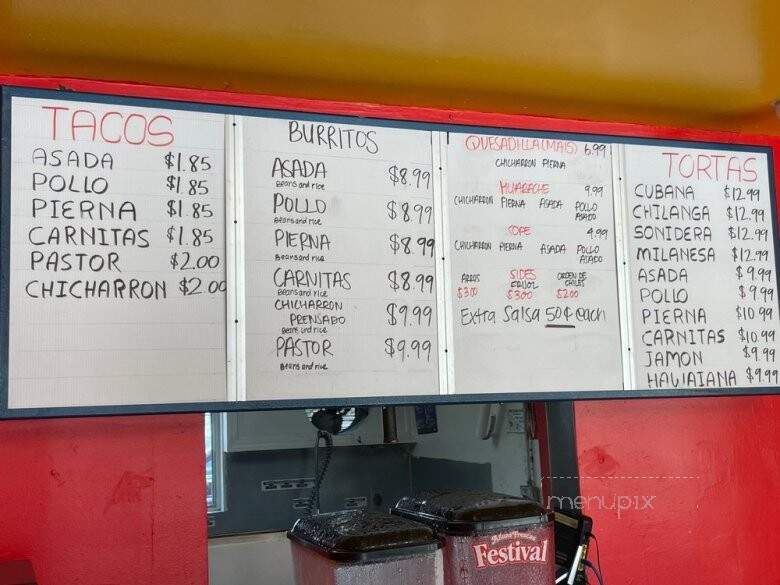 TACOS
ASADA $1.85
POLLO $1.85
PIERNA $1.85
CARNITAS $1.85
PASTOR $2.00
CHICHARRON $2.00
BURRITOS
ASADA $8.99
Beans and rice
POLLO $8.99
Beans and rice
PIERNA $8.99
Beans and rice
CARNITAS $8.99
Beans and rice
CHICHARRON
PRENSADO $9.99
Beans and rice
PASTOR $9.99
Beans and rice
QUESADILLA(MAIS) 6.99
CHICHARRON PIERNA
HUARACHE 9.99
CHICHARRON PIERNA ASADA POLLO
ASADO
SOPE 4.99
CHICHARRON PIERNA ASADA POLLO
ASADO
ARROS SIDES ORDEN DE
FRIJOL CHILES
$3.00 $3.00 $2.00
Extra Salsa 50¢ each
TORTAS
CUBANA $12.99
CHILANGA $12.99
SONIDERA $12.99
MILANESA $12.99
ASADA $9.99
POLLO $9.99
PIERNA $10.99
CARNITAS $10.99
JAMON $9.99
HAWAIANA $9.99
menupix
Festival